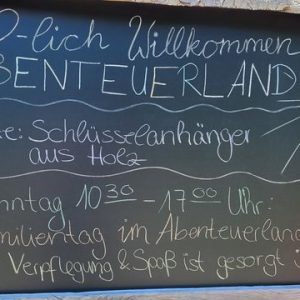 -lich Willkommen
BENTEUERLAND
e: Schlüsselanhänger
aus Holz
nntag 10 30 - 17 00 Uhr:
milientag im Abenteuerland
Verpflegung & Spaß ist gesorgt